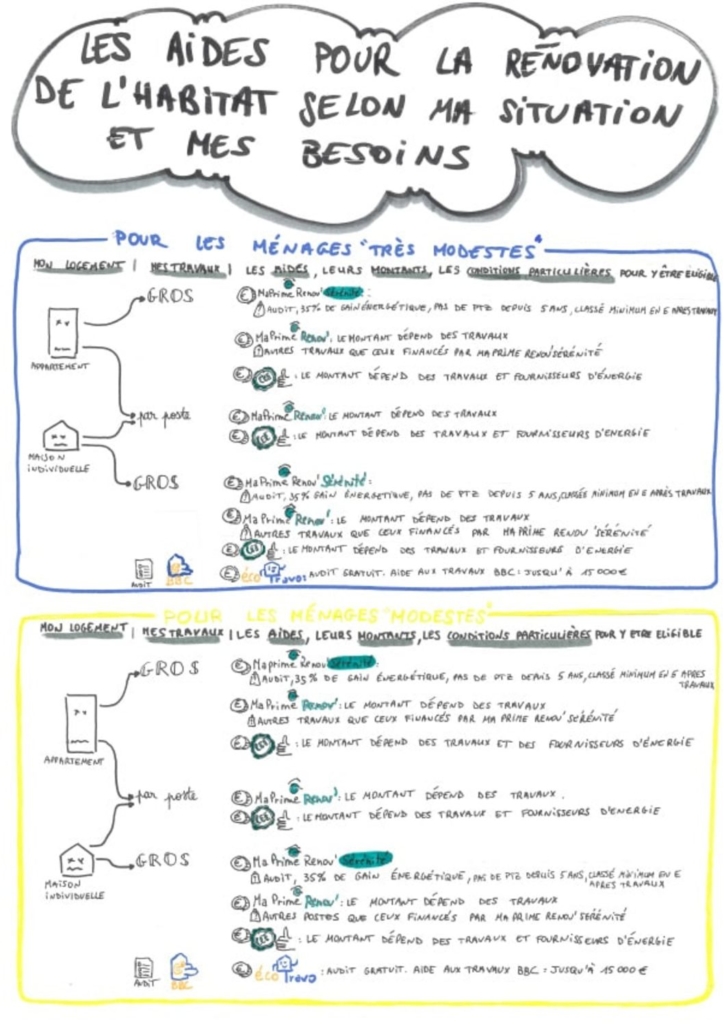 LES AIDES POUR LA RÉNOVATION
DE L'HABITAT SELON MA SITUATION
ET MES BESOINS
POUR LES MÉNAGES "TRÈS MODESTES"
MON LOGEMENT | MES TRAVAUX | LES AIDES, LEURS MONTANTS, LES CONDITIONS PARTICULIÈRES POUR Y ÊTRE ELIGIBLE
GROS
€ MaPrime Renov' Sérénité :
AUDIT, 35% DE GAIN ÉNERGÉTIQUE, PAS DE PTZ DEPUIS 5 ANS, CLASSÉ MINIMUM EN E APRES TRAVAUX
€ MaPrime Renov': LE MONTANT DÉPEND DES TRAVAUX
AUTRES TRAVAUX QUE CEUX FINANCÉS PAR MA PRIME RENOV' SÉRÉNITÉ
APPARTEMENT
€ CEE : LE MONTANT DÉPEND DES TRAVAUX ET FOURNISSEURS D'ÉNERGIE
par poste
€ MaPrime Renov': LE MONTANT DÉPEND DES TRAVAUX
€ CEE : LE MONTANT DÉPEND DES TRAVAUX ET FOURNISSEURS D'ENERGIE
MAISON
INDIVIDUELLE
GROS
€ Ma Prime Renov' Sérénité :
AUDIT, 35% GAIN ÉNERGETIQUE, PAS DE PTZ DEPUIS 5 ANS, CLASSÉS MINIMUM EN E APRÈS TRAVAUX
€ Ma Prime Renov': LE MONTANT DÉPEND DES TRAVAUX
AUTRES TRAVAUX QUE CEUX FINANCÉS PAR MA PRIME RENOV' SÉRÉNITÉ
€ CEE : LE MONTANT DÉPEND DES TRAVAUX ET FOURNISSEURS D'ÉNERGIE
AUDIT BBC € éco Travo : AUDIT GRATUIT. AIDE AUX TRAVAUX BBC : JUSQU'À 15 000 €
POUR LES MÉNAGES "MODESTES"
MON LOGEMENT | MES TRAVAUX | LES AIDES, LEURS MONTANTS, LES CONDITIONS PARTICULIÈRES POUR Y ETRE ELIGIBLE
GROS
€ Maprime Renov' Sérénité :
AUDIT, 35% DE GAIN ÉNERGÉTIQUE, PAS DE PTZ DEPAIS 5 ANS, CLASSÉ MINIMUM EN E APRES
TRAVAUX
€ Ma Prime Renov': LE MONTANT DÉPEND DES TRAVAUX
AUTRES TRAVAUX QUE CEUX FINANCÉS PAR MA PRIME RENOV' SERÉNITÉ
€ CEE : LE MONTANT DÉPEND DES TRAVAUX ET DES FOURNISSEURS D'ÉNERGIE
APPARTEMENT
par poste
€ MaPrime Renov': LE MONTANT DÉPEND DES TRAVAUX.
€ CEE : LE MONTANT DÉPEND DES TRAVAUX ET FOURNISSEURS D'ENERGIE
GROS
€ Ma Prime Renov' Sérénité :
AUDIT, 35% DE GAIN ÉNERGÉTIQUE, PAS DE PTZ DEPUIS 5 ANS, CLASSÉ MINIMUM EN E
APRES TRAVAUX
MAISON
INDIVIDUELLE
€ Ma Prime Renov': LE MONTANT DÉPEND DES TRAVAUX
AUTRES POSTES QUE CEUX FINANCÉS PAR MA PRIME RENOV' SÉRÉNITÉ
€ CEE : LE MONTANT DÉPEND DES TRAVAUX ET FOURNISSEURS D'ÉNERGIE
AUDIT BBC € éco Travo : AUDIT GRATUIT. AIDE AUX TRAVAUX BBC : JUSQU'À 15 000 €